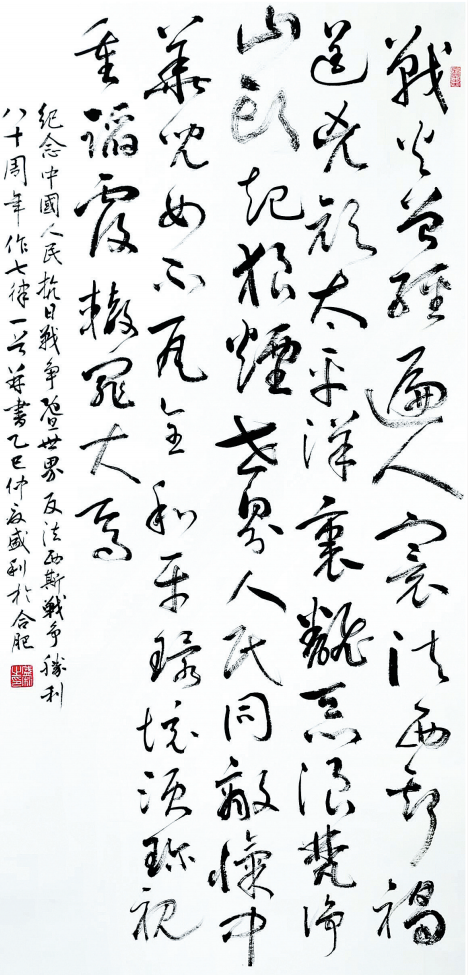 戰火曾經遍人寰法西斯禍
逞兇頑太平洋裏翻惡浪梵淨
山頭起狼煙世界人民同敵愾中
華兒女不瓦全和平環境須珍視
重蹈覆轍罪大焉
紀念中國人民抗日戰爭暨世界反法西斯戰爭勝利
八十周年作七律一首并書乙巳仲夏盛利於合肥